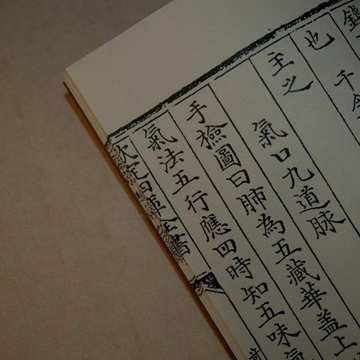 也　千
至之
氣口九道脈
手撿圖曰肺為五藏華蓋上
氣法五行應四時知五味
欽定四庫全書